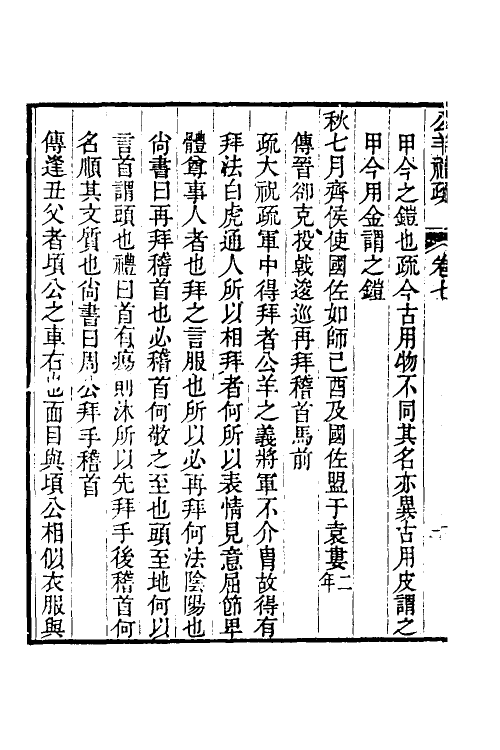 公羊禮疏 卷七
甲今之鎧也疏今古用物不同其名亦異古用皮謂之
甲今用金謂之鎧
秋七月齊侯使國佐如師己酉及國佐盟于袁婁二年
傳晉郤克投戟逡巡再拜稽首馬前
疏大祝疏軍中得拜者公羊之義將軍不介胄故得有
拜法白虎通人所以相拜者何所以表情見意屈節卑
體尊事人者也拜之言服也所以必再拜何法陰陽也
尙書曰再拜稽首也必稽首何敬之至也頭至地何以
言首謂頭也禮曰首有瘍則沐所以先拜手後稽首何
名順其文質也尙書曰周公拜手稽首
傳逢丑父者頃公之車右也面目與頃公相似衣服與